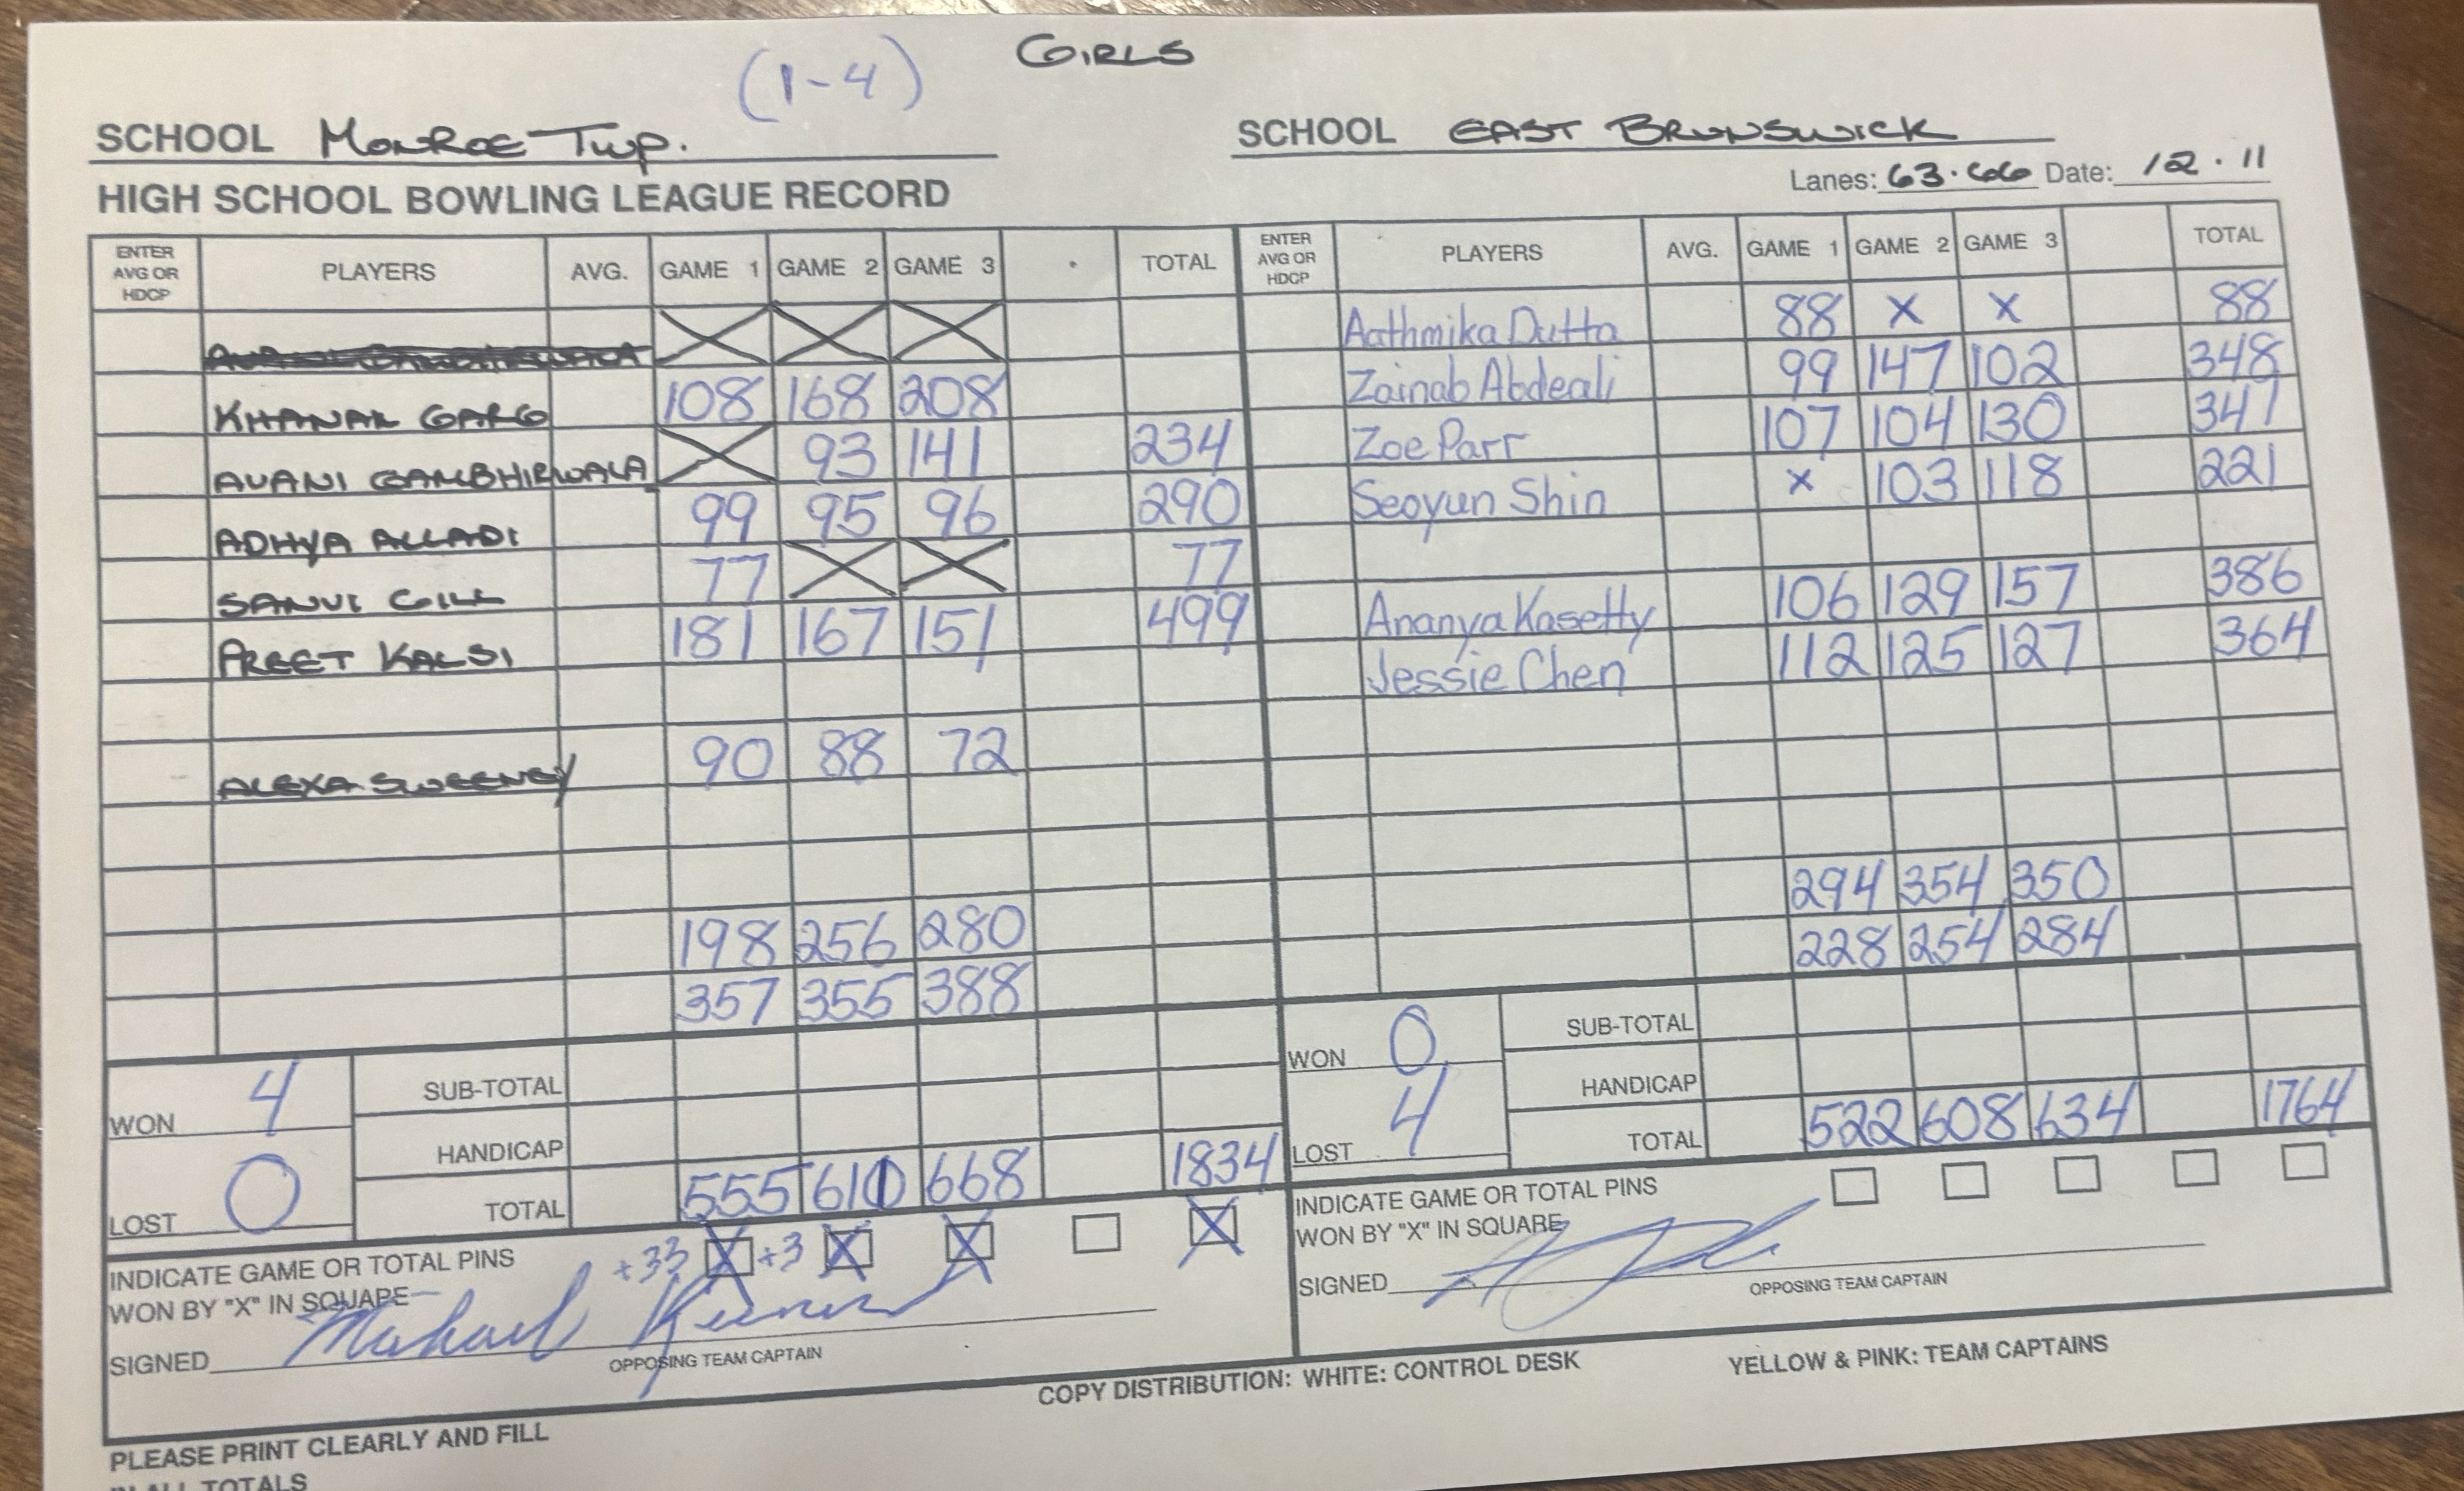 GIRLS
(1-4)
SCHOOL Monroe Twp.
SCHOOL EAST BRUNSWICK
HIGH SCHOOL BOWLING LEAGUE RECORD
Lanes: 63·66 Date: 12·11
ENTER AVG OR HDCP PLAYERS AVG. GAME 1 GAME 2 GAME 3 TOTAL
ENTER AVG OR HDCP PLAYERS AVG. GAME 1 GAME 2 GAME 3 TOTAL
KHANAK GARG 108 168 208
AVANI GAMBHIRWALA 93 141 234
ADHYA ALLADI 99 95 96 290
SANVI GILL 77 77
PREET KALSI 181 167 151 499
ALEXA SWEENEY 90 88 72
198 256 280
357 355 388
Aathmika Dutta 88 X X 88
Zainab Abdeali 99 147 102 348
Zoe Parr 107 104 130 341
Seoyun Shin X 103 118 221
Ananya Kasetty 106 129 157 386
Jessie Chen 112 125 127 364
294 354 350
228 254 284
WON 4
LOST 0
SUB-TOTAL
HANDICAP
TOTAL 555 611 668 1834
+33 +3
INDICATE GAME OR TOTAL PINS
WON BY "X" IN SQUARE
SIGNED Michael
OPPOSING TEAM CAPTAIN
WON 0
LOST 4
SUB-TOTAL
HANDICAP
TOTAL 522 608 634 1764
INDICATE GAME OR TOTAL PINS
WON BY "X" IN SQUARE
SIGNED
OPPOSING TEAM CAPTAIN
COPY DISTRIBUTION: WHITE: CONTROL DESK YELLOW & PINK: TEAM CAPTAINS
PLEASE PRINT CLEARLY AND FILL
IN ALL TOTALS